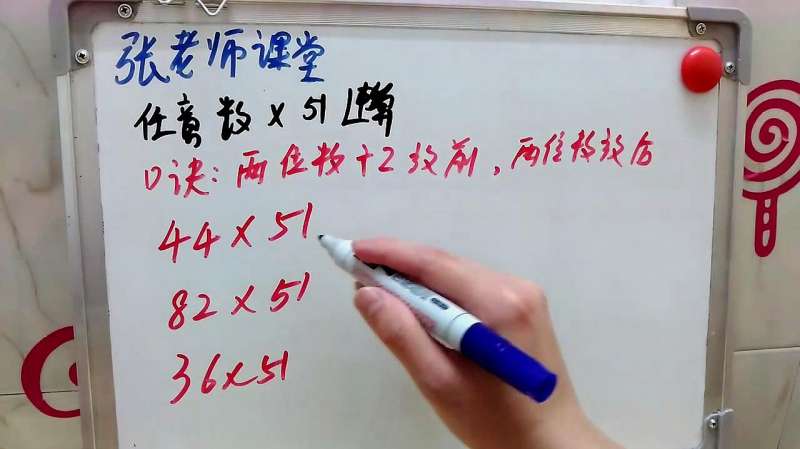 张老师课堂
任意数×51速算
口诀:两位数÷2放前,两位数放后
44×51
82×51
36×51